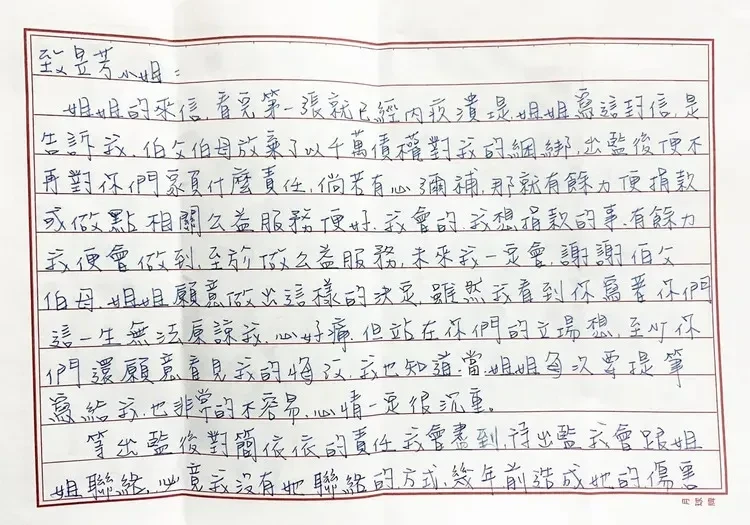 致昱芳小姐：
姐姐的來信，看完第一張就已經內疚潰堤，姐姐寫這封信，是
告訴我，伯父伯母放棄了以千萬債權對我的綑綁，出監後便不
再對你們家負什麼責任，倘若有心彌補，那就有餘力便捐款
或做點相關公益服務便好，我會的，我想捐款的事，有餘力
我便會做到，至於做公益服務，未來我一定會，謝謝伯父
伯母、姐姐願意做出這樣的決定，雖然我看到你寫著你們
這一生無法原諒我，心好痛，但站在你們的立場想，至少你
們還願意看見我的悔改，我也知道，當姐姐每次要提筆
寫給我，也非常的不容易，心情一定很沉重。
等出監後對簡依依的責任我會盡到，待出監我會跟姐
姐聯絡，必竟我沒有她聯絡的方式，幾年前造成她的傷害